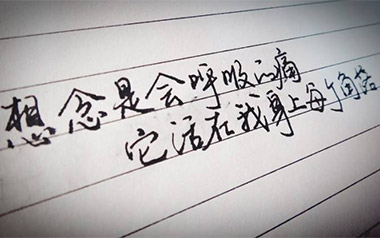 想念是会呼吸的痛
它活在我身上每个角落